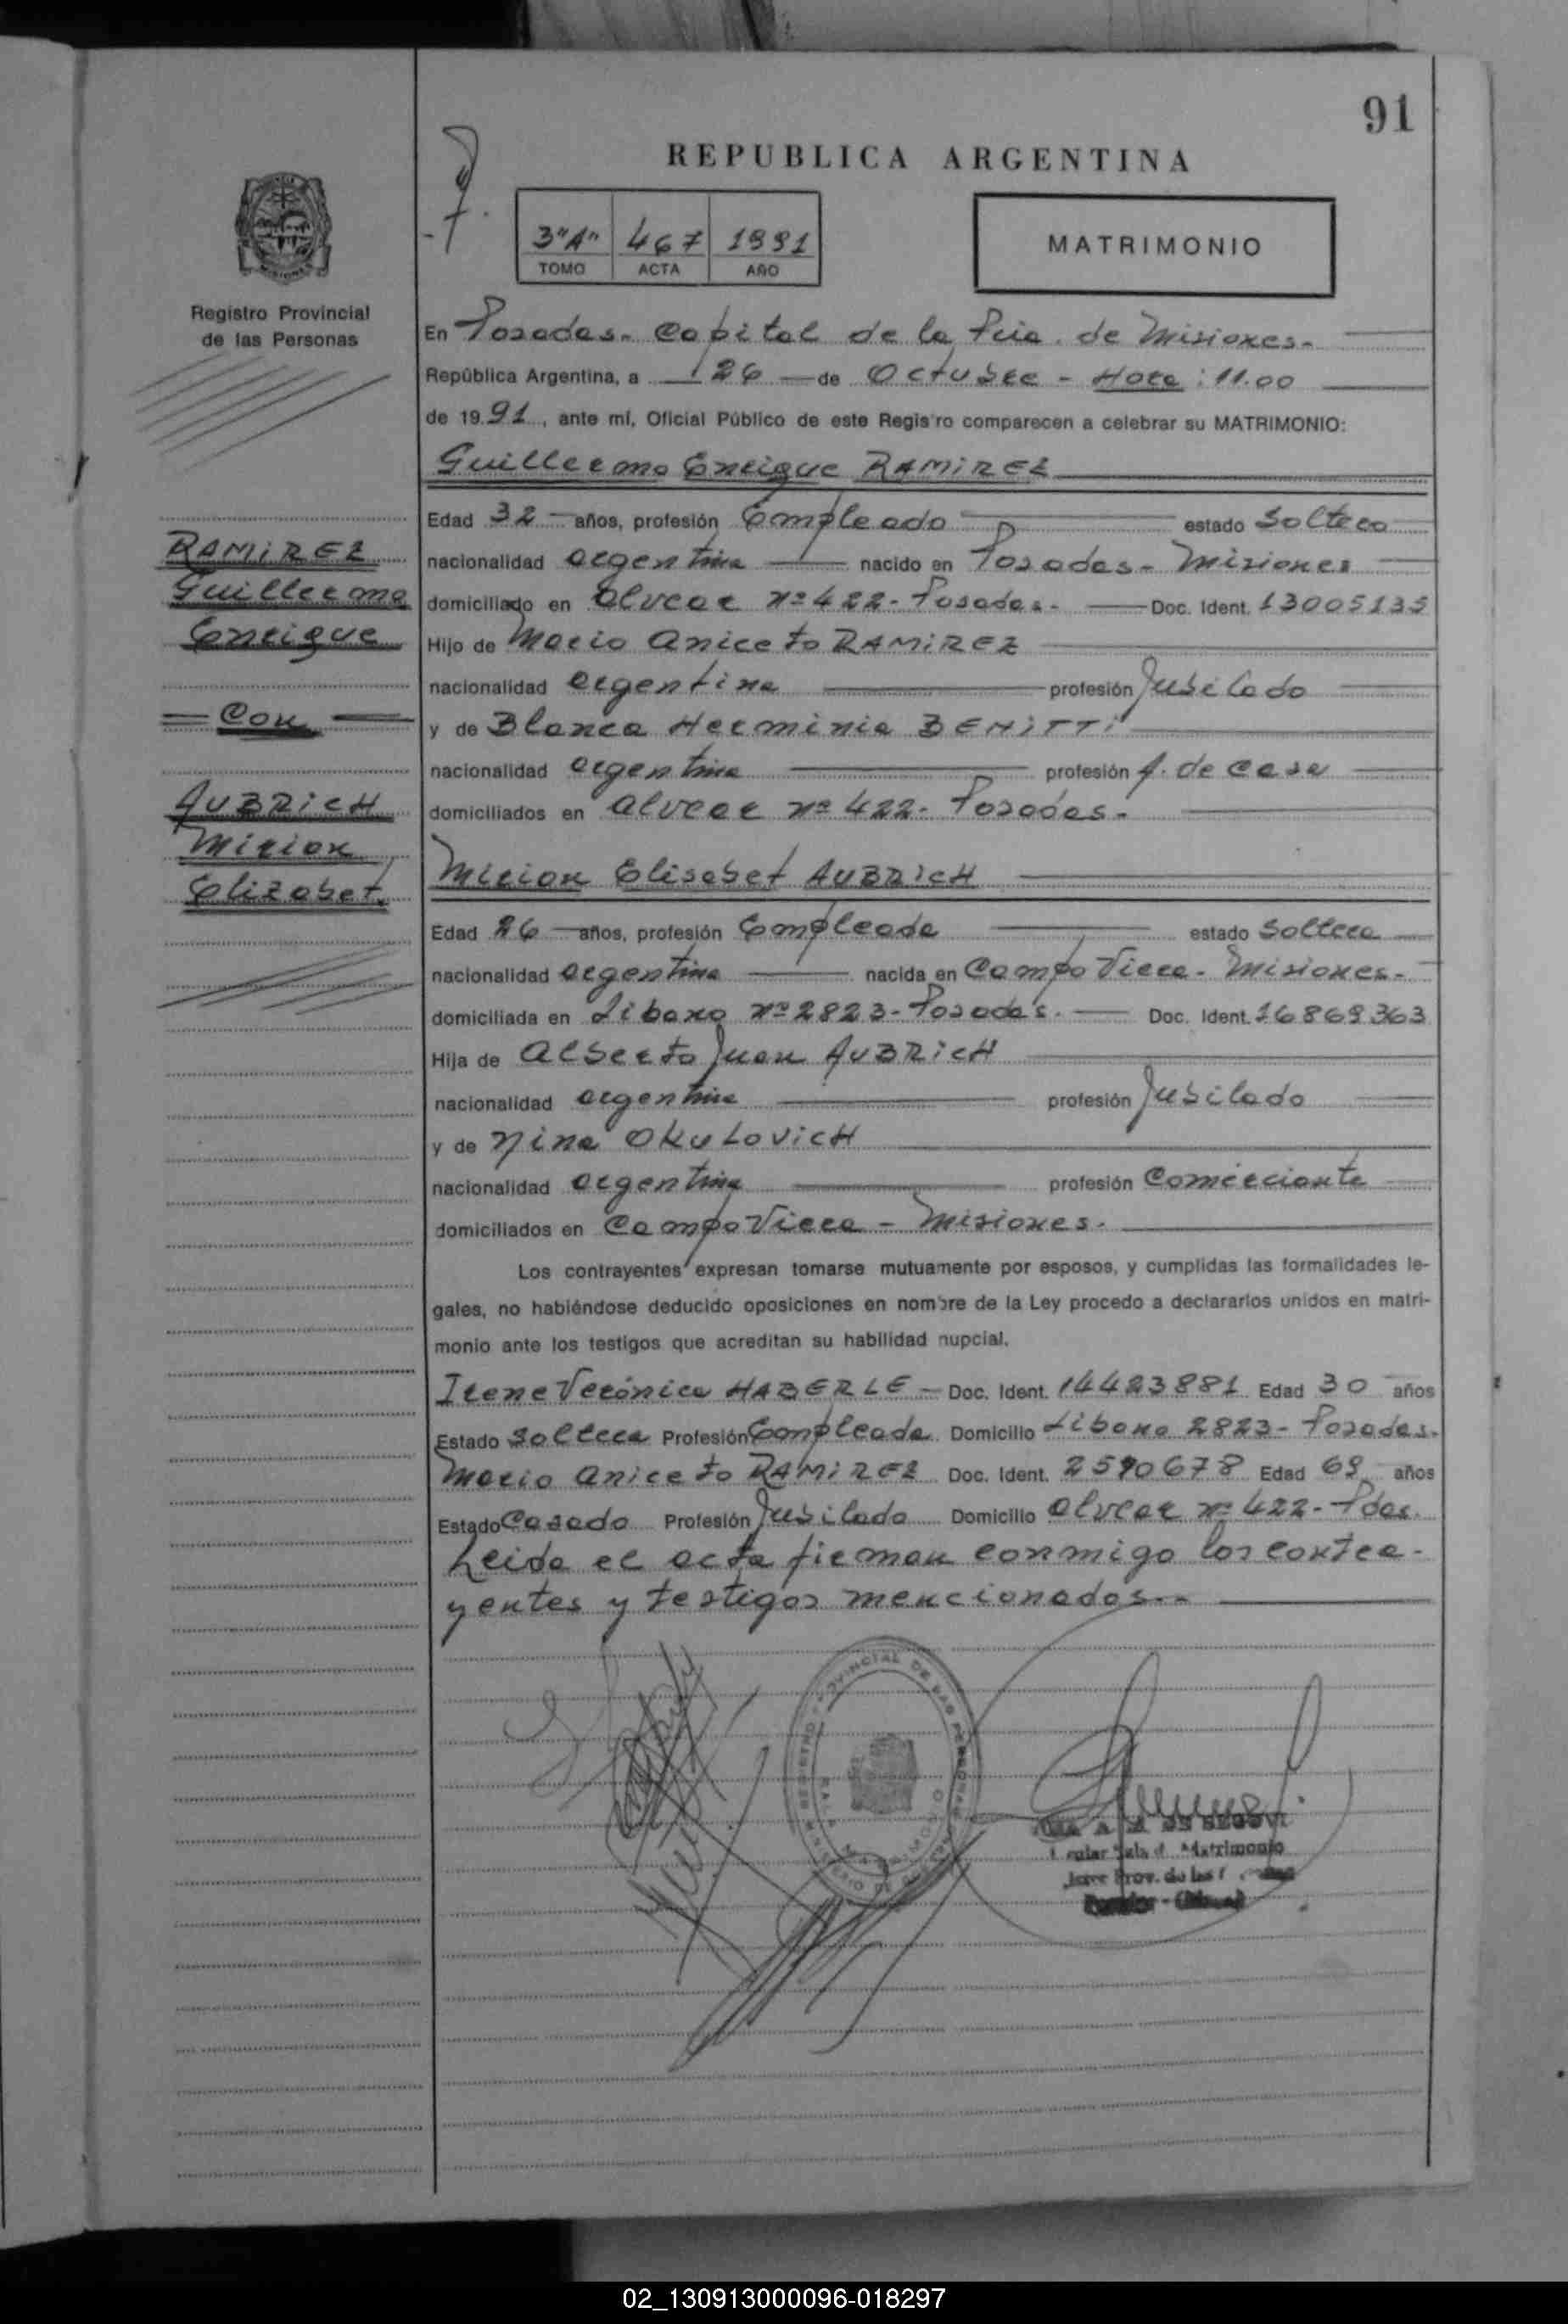 91
REPUBLICA ARGENTINA
3"A" 467 1991
TOMO ACTA AÑO
MATRIMONIO
Registro Provincial
de las Personas
RAMIREZ
Guillermo
Enrique
con
AUBRICH
Mirian
Elizabet.
En Posadas- Capital de la Pcia. de Misiones-
República Argentina, a 26 de Octubre - Hora: 11.00
de 1991, ante mí, Oficial Público de este Registro comparecen a celebrar su MATRIMONIO:
Guillermo Enrique RAMIREZ
Edad 32 años, profesión Empleado estado Soltero
nacionalidad argentina nacido en Posadas- Misiones
domiciliado en Alvear nº 422- Posadas- Doc. Ident. 13005135
Hijo de Mario Aniceto RAMIREZ
nacionalidad argentina profesión Jubilado
y de Blanca Herminia BENITTI
nacionalidad argentina profesión A. de casa
domiciliados en Alvear nº 422- Posadas-
Mirian Elisabet AUBRICH
Edad 26 años, profesión Empleada estado Soltera
nacionalidad argentina nacida en Campo Viera- Misiones-
domiciliada en Libano nº 2823- Posadas. Doc. Ident. 16869363
Hija de Alberto Juan AUBRICH
nacionalidad argentina profesión Jubilado
y de Nina OKULOVICH
nacionalidad argentina profesión Comerciante
domiciliados en Campo Viera - Misiones.
Los contrayentes expresan tomarse mutuamente por esposos, y cumplidas las formalidades le-
gales, no habiéndose deducido oposiciones en nombre de la Ley procedo a declararlos unidos en matri-
monio ante los testigos que acreditan su habilidad nupcial.
Irene Verónica HABERLE - Doc. Ident. 14423881 Edad 30 años
Estado Soltera Profesión Empleada Domicilio Libano 2823- Posadas-
Mario Aniceto RAMIREZ Doc. Ident. 2590678 Edad 69 años
Estado Casado Profesión Jubilado Domicilio Alvear nº 422- Pdas.
Leida el acta firman conmigo los contra-
yentes y testigos mencionados.-
REGISTRO PROVINCIAL DE LAS PERSONAS
DE SEGOVI
Matrimonio
Prov. de las
02_130913000096-018297